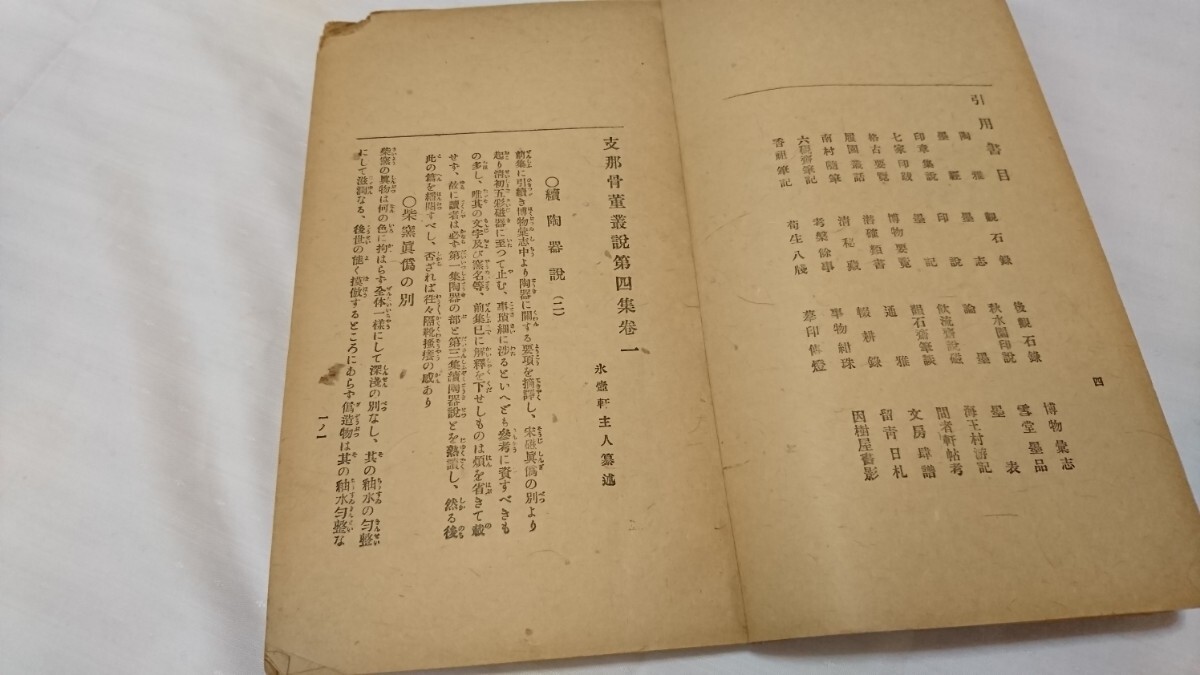 引用書目
陶雅 觀石錄 後觀石錄 博物彙志
墨經 墨志 秋水園印說 雪堂墨品
印章集說 印說 論墨 墨表
七家印跋 墨記 飲流齋說磁 海王村游記
格古要覽 博物要覽 觀石齋筆談 間者軒帖考
履園叢話 潛確類書 通雅 文房肆譜
南村隨筆 清秘藏 輟耕錄 留青日札
六硯齋筆記 考槃餘事 事物紺珠 因樹屋書影
香祖筆記 荀生八牋 摹印傳燈
四
支那骨董叢說第四集卷一
氷壺軒主人纂述
〇續陶器說(二)
前集に引續き博物彙志中より陶器に關する要項を摘譯し、宋磁眞僞の別より
起り淸初五彩磁器に至つて止む、事瑣細に涉るといへども參考に資すべきも
の多し、唯其の文字及び窯名等、前集已に解釋を下せしものは煩を省きて載
せず、故に讀者は必ず第一集陶器の部と第三集續陶器說とを熟讀し、然る後
此の篇を繙閱すべし、否ざれば往々隔靴搔痒の感あり
〇柴窯眞僞の別
柴窯の眞物は何の色に拘はらず全体一樣にして深淺の別なし、其の釉水の勻整
にして滋潤なる、後世の能く摸倣するところにあらず僞造物は其の釉水勻整な
一ノ一